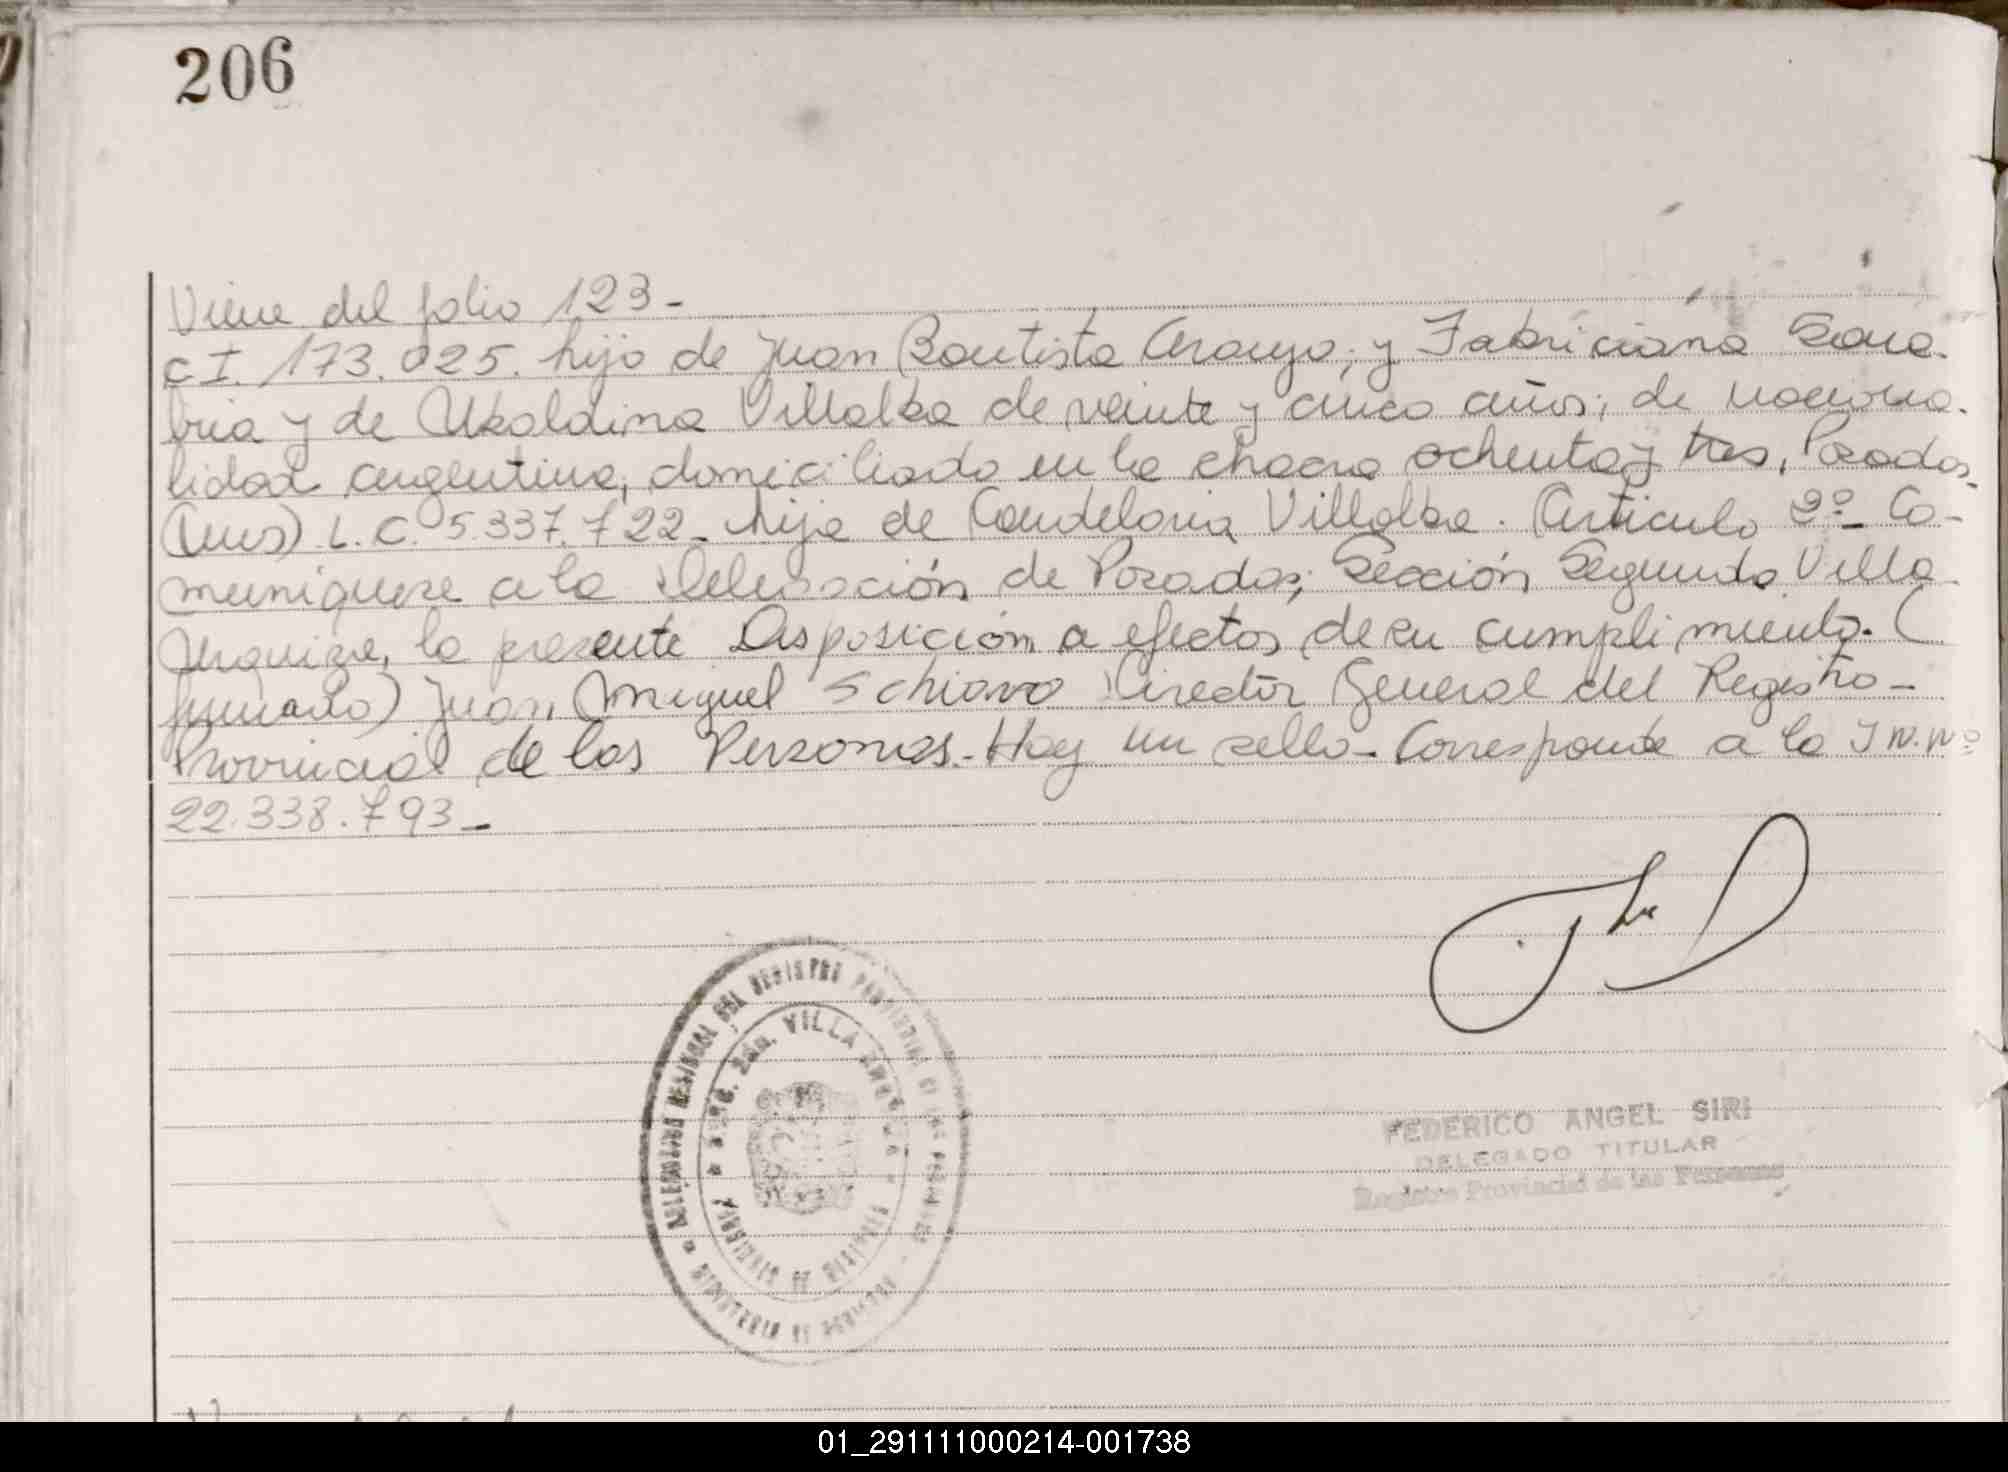 206
Viene del folio 123-
C.I. 173.025. hijo de Juan Bautista Araujo; y Fabriciana Sana-
bria y de Ubaldina Villalba de veinte y cinco años; de naciona-
lidad argentina, domiciliado en la chacra ochenta y tres, Posadas
(Mns) L.C. 5.337.722- hija de Candelaria Villalba. Articulo 2º- Co-
muniquese a la Delegación de Posadas; Sección Segunda Villa
Urquiza, la presente Disposición a efectos de su cumplimiento. (
firmado) Juan Miguel Schiavo Director General del Registro-
Provincial de las Personas.- Hay un sello- Corresponde a la I N. Nº
22.338.793-
DELEGACION REGIONAL DEL REGISTRO PROVINCIAL DE LAS PERSONAS
SECC. 2da. VILLA URQUIZA
FEDERICO ANGEL SIRI
DELEGADO TITULAR
Registro Provincial de las Personas
01_291111000214-001738